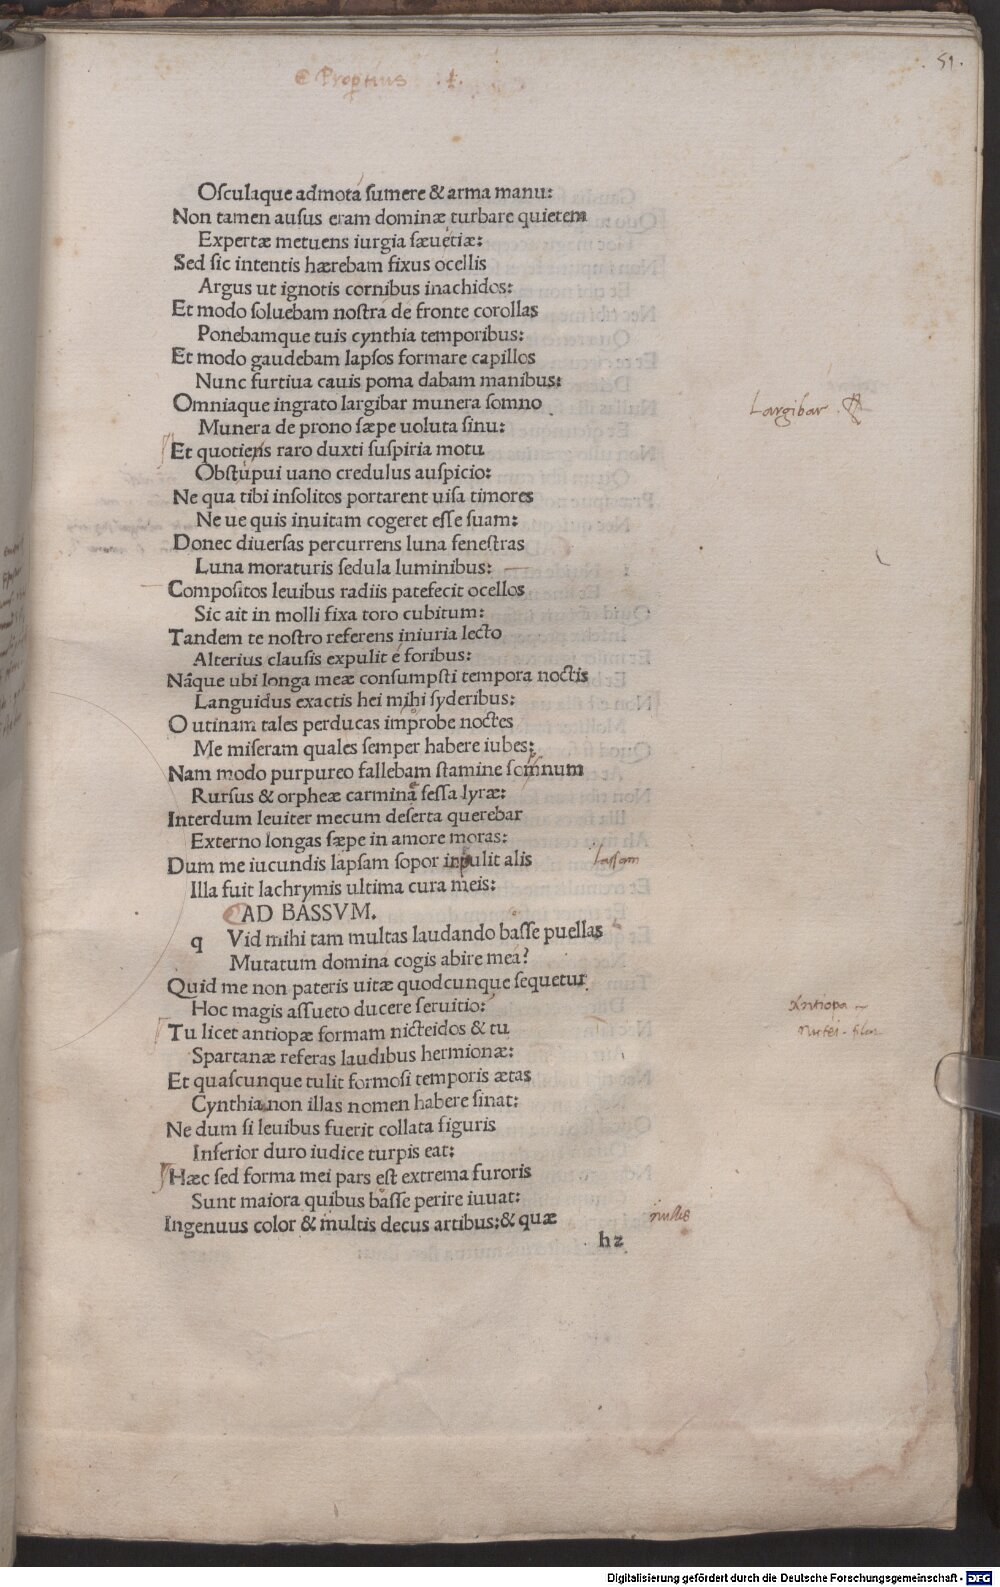 51.
Propertius .1.
Osculaque admota ſumere & arma manu:
Non tamen auſus eram dominæ turbare quietem
Expertæ metuens iurgia ſæuetiæ:
Sed ſic intentis hærebam fixus ocellis
Argus ut ignotis cornibus inachidos:
Et modo ſoluebam noſtra de fronte corollas
Ponebamque tuis cynthia temporibus:
Et modo gaudebam lapſos formare capillos
Nunc furtiua cauis poma dabam manibus:
Omniaque ingrato largibar munera ſomno
Largibar
Munera de prono ſæpe uoluta ſinu:
Et quotiens raro duxti ſuſpiria motu
Obſtupui uano credulus auſpicio:
Ne qua tibi inſolitos portarent uiſa timores
Ne ue quis inuitam cogeret eſſe ſuam:
Donec diuerſas percurrens luna feneſtras
Luna moraturis ſedula luminibus:
Compoſitos leuibus radiis patefecit ocellos
Sic ait in molli fixa toro cubitum:
Tandem te noſtro referens iniuria lecto
Alterius clauſis expulit e foribus:
Nãque ubi longa meæ conſumpſti tempora noctis
Languidus exactis hei mihi ſyderibus:
O utinam tales perducas improbe noctes
Me miſeram quales ſemper habere iubes:
Nam modo purpureo fallebam ſtamine ſomnum
Rurſus & orpheæ carmina feſſa lyræ:
Interdum leuiter mecum deſerta querebar
Externo longas ſæpe in amore moras:
Dum me iucundis lapſam ſopor inpulit alis
laſſam
Illa fuit lachrymis ultima cura meis:
AD BASSVM.
q Vid mihi tam multas laudando baſſe puellas
Mutatum domina cogis abire mea?
Quid me non pateris uitæ quodcunque ſequetur
Hoc magis aſſueto ducere ſeruitio:
Antiopa
Tu licet antiopæ formam nicteidos & tu
nictei . filia
Spartanæ referas laudibus hermionæ:
Et quaſcunque tulit formoſi temporis ætas
Cynthia non illas nomen habere ſinat:
Ne dum ſi leuibus fuerit collata figuris
Inferior duro iudice turpis eat:
Hæc ſed forma mei pars eſt extrema furoris
Sunt maiora quibus baſſe perire iuuat:
Ingenuus color & multis decus artibus:& quæ
h2
Digitalisierung gefördert durch die Deutsche Forschungsgemeinschaft - DFG